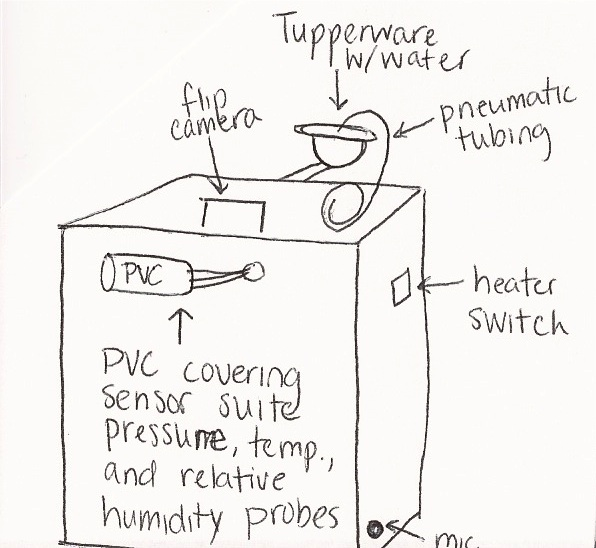 Tupperware
w/water
flip
camera
pneumatic
tubing
PVC
heater
switch
PVC covering
sensor suite
pressure, temp.,
and relative
humidity probes
mic.